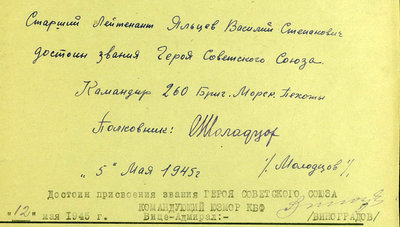 Старший Лейтенант Яльцев Василий Степанович
достоин звания Героя Советского Союза.
Командир 260 Бриг. Морск. Пехоты
Полковник:
"5" Мая 1945г /. Молодцов /,
Достоин присвоения звания ГЕРОЯ СОВЕТСКОГО СОЮЗА
КОМАНДУЮЩИЙ ЮЗМОР КБФ
"12" мая 1945 г. Вице-Адмирал:- /ВИНОГРАДОВ/